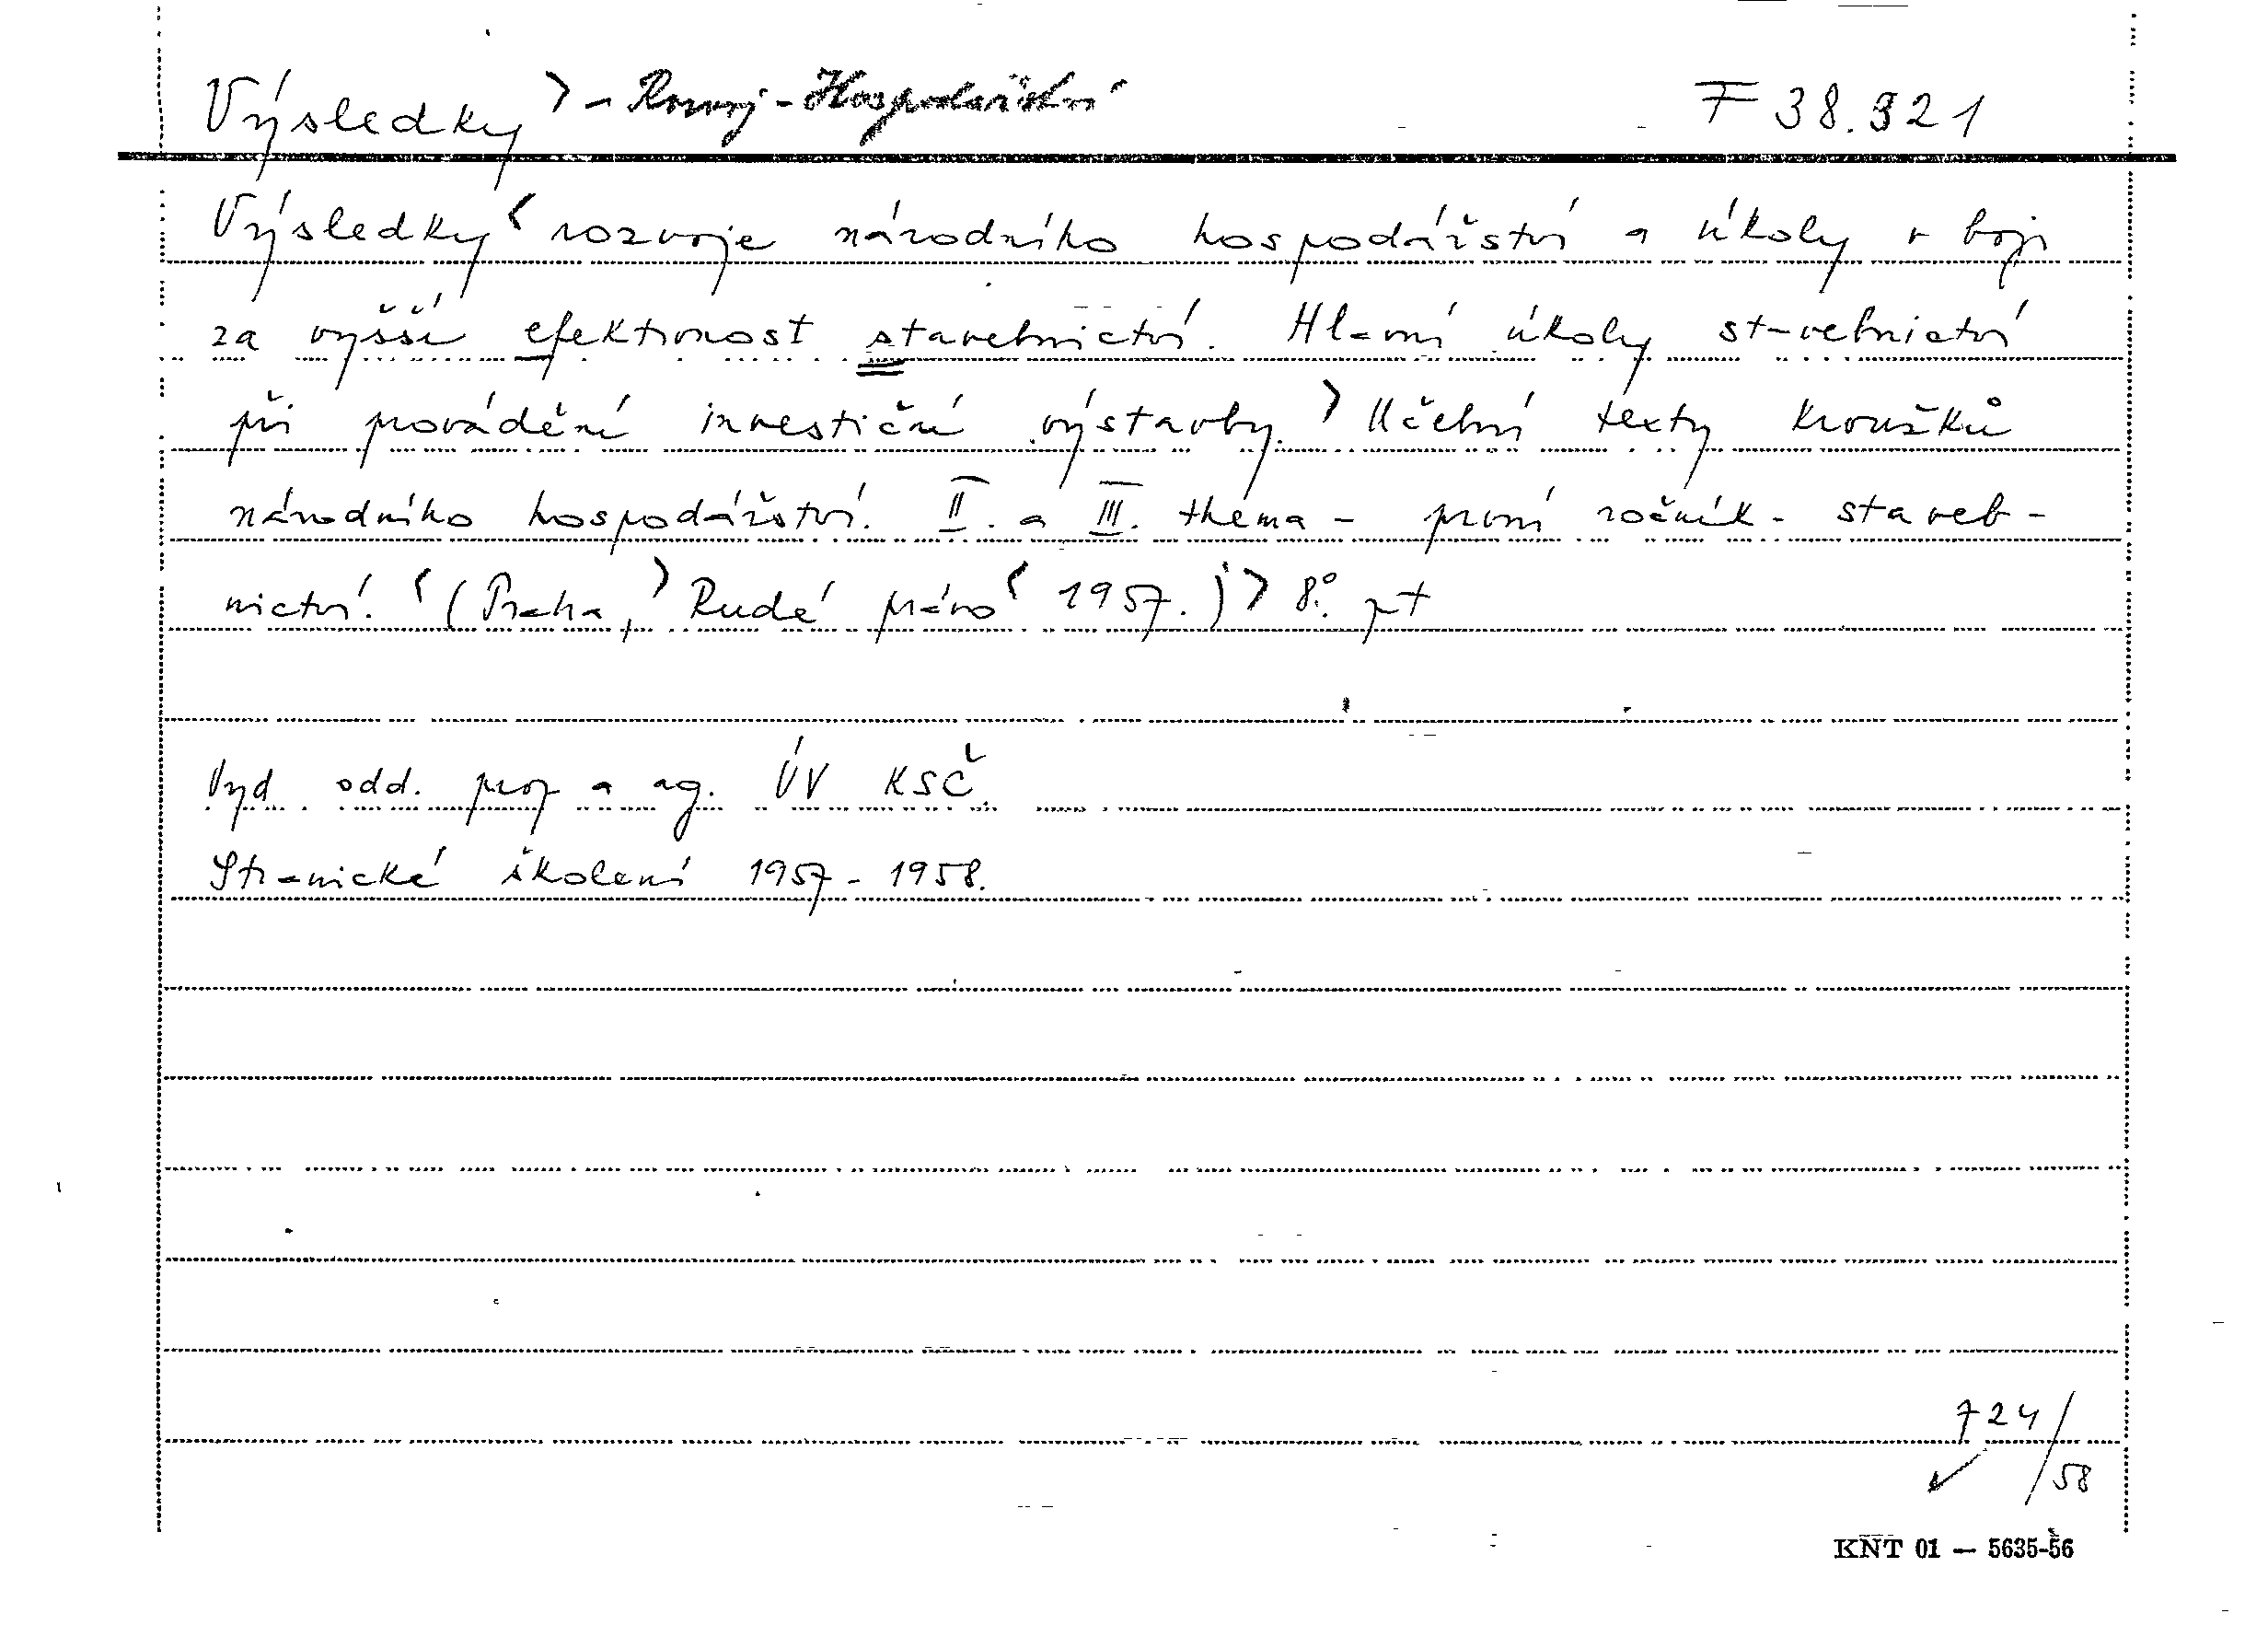 Výsledky > - Rozvoj - Hospodářství F 38.321
Výsledky < rozvoje národního hospodářství a úkoly v boji
za vyšší efektivnost stavebnictví. Hlavní úkoly stavebnictví
při provádění investiční výstavby. > Učební texty kroužků
národního hospodářství. II. a III. thema - první ročník - staveb-
nictví. < (Praha, > Rudé právo < 1957.) > 8°. pt
Vyd. odd. prop a ag. ÚV KSČ.
Stranické školení 1957 - 1958.
724/58
KNT 01 — 5635-56